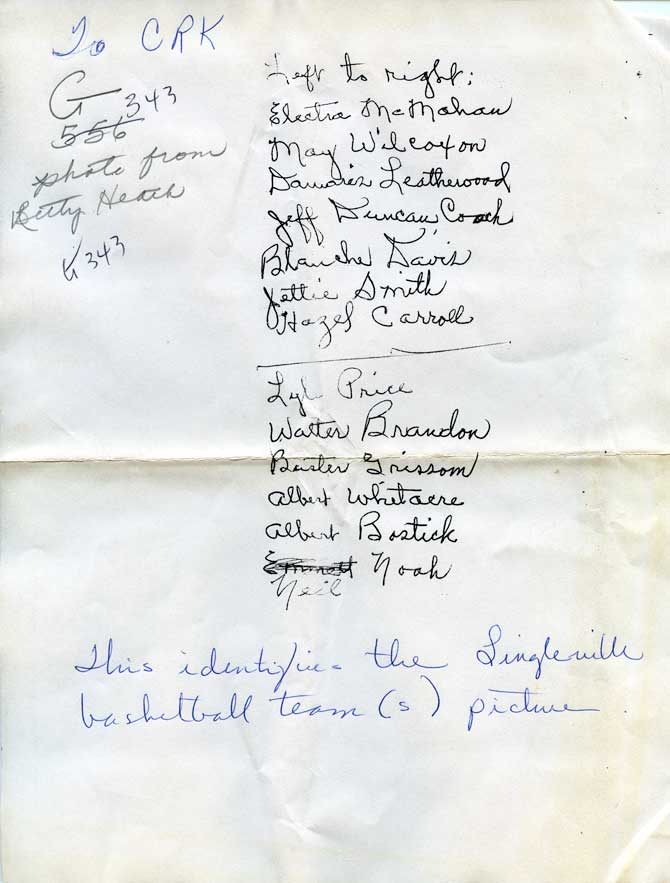 To CRK
G 343
556
photo from
Betty Heath
G 343
Left to right;
Electra McMahan
May Wilcoxon
Damaris Leatherwood
Jeff Duncan, Coach
Blanche Davis
Jettie Smith
Hazel Carroll
Lyle Price
Walter Brandon
Buster Grissom
Albert Whitacre
Albert Bostick
Emmett Noah
Neil
This identifies the Lingleville
basketball team(s) picture.